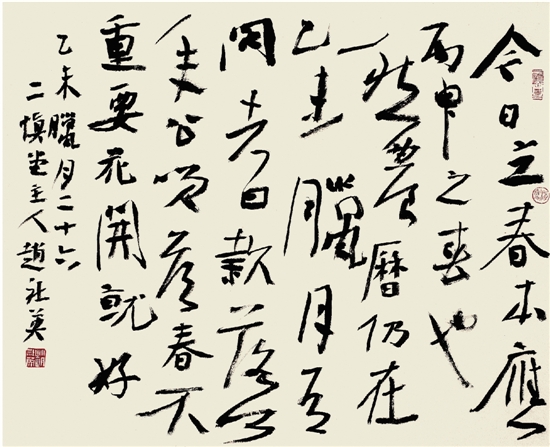 今日立春本應
丙申之春也
然農曆仍在
乙未臘月
日款落
落春不
重要花開就好
乙未臘月二十六
二慎堂主人趙社英